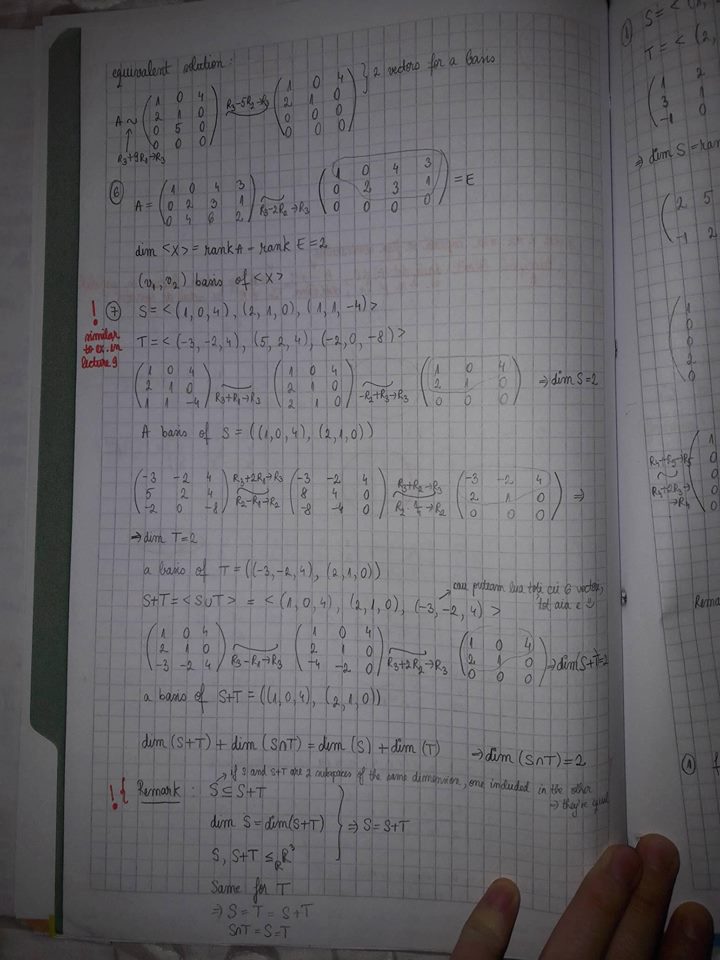 equivalent solution:
A ~ ( 1 0 4 / 2 1 0 / 0 5 0 / 0 0 0 ) R3-5R2→R3 ( 1 0 4 / 2 1 0 / 0 0 0 / 0 0 0 ) } 2 vectors for a basis
R3+9R1→R3
⑥ A = ( 1 0 4 3 / 0 2 3 1 / 0 4 6 2 ) R3-2R2→R3 ( 1 0 4 3 / 0 2 3 1 / 0 0 0 0 ) = E
dim <X> = rank A - rank E = 2
(v1, v2) basis of <X>
! ⑦ S = < (1, 0, 4), (2, 1, 0), (1, 1, -4) >
similar
to ex. in
lecture 9
T = < (-3, -2, 4), (5, 2, 4), (-2, 0, -8) >
( 1 0 4 / 2 1 0 / 1 1 -4 ) R3+R1→R3 ( 1 0 4 / 2 1 0 / 2 1 0 ) -R2+R3→R3 ( 1 0 4 / 2 1 0 / 0 0 0 ) ⇒ dim S = 2
A basis of S = ((1, 0, 4), (2, 1, 0))
( -3 -2 4 / 5 2 4 / -2 0 -8 ) R3+2R1→R3 R2-R1→R2 ( -3 -2 4 / 8 4 0 / -8 -4 0 ) R3+R2→R3 R2·1/4→R2 ( -3 -2 4 / 2 1 0 / 0 0 0 ) ⇒
⇒ dim T = 2
a basis of T = ((-3, -2, 4), (2, 1, 0))
sau puteam lua toti cei 6 vectori,
tot aia e
S+T = <S∪T> = < (1, 0, 4), (2, 1, 0), (-3, -2, 4) >
( 1 0 4 / 2 1 0 / -3 -2 4 ) R3-R1→R3 ( 1 0 4 / 2 1 0 / -4 -2 0 ) R3+2R2→R3 ( 1 0 4 / 2 1 0 / 0 0 0 ) ⇒ dim(S+T)=2
a basis of S+T = ((1, 0, 4), (2, 1, 0))
dim (S+T) + dim (S∩T) = dim (S) + dim (T) ⇒ dim (S∩T) = 2
if S and S+T are 2 subspaces of the same dimension, one included in the other
⇒ they're equal
! { Remark : S ⊆ S+T
dim S = dim(S+T) } ⇒ S = S+T
S, S+T ≤R R3
Same for T
⇒ S = T = S+T
S∩T = S = T
① S = <
T = < (2,
( 1 2 / 3 1 / -1 0
⇒ dim S = ran
( 2 5 / -1 2
( 1 / 0 / 0 / 2 / 0
( 1 / 0 / 0 / 0 / 0
→R4
Rema
①